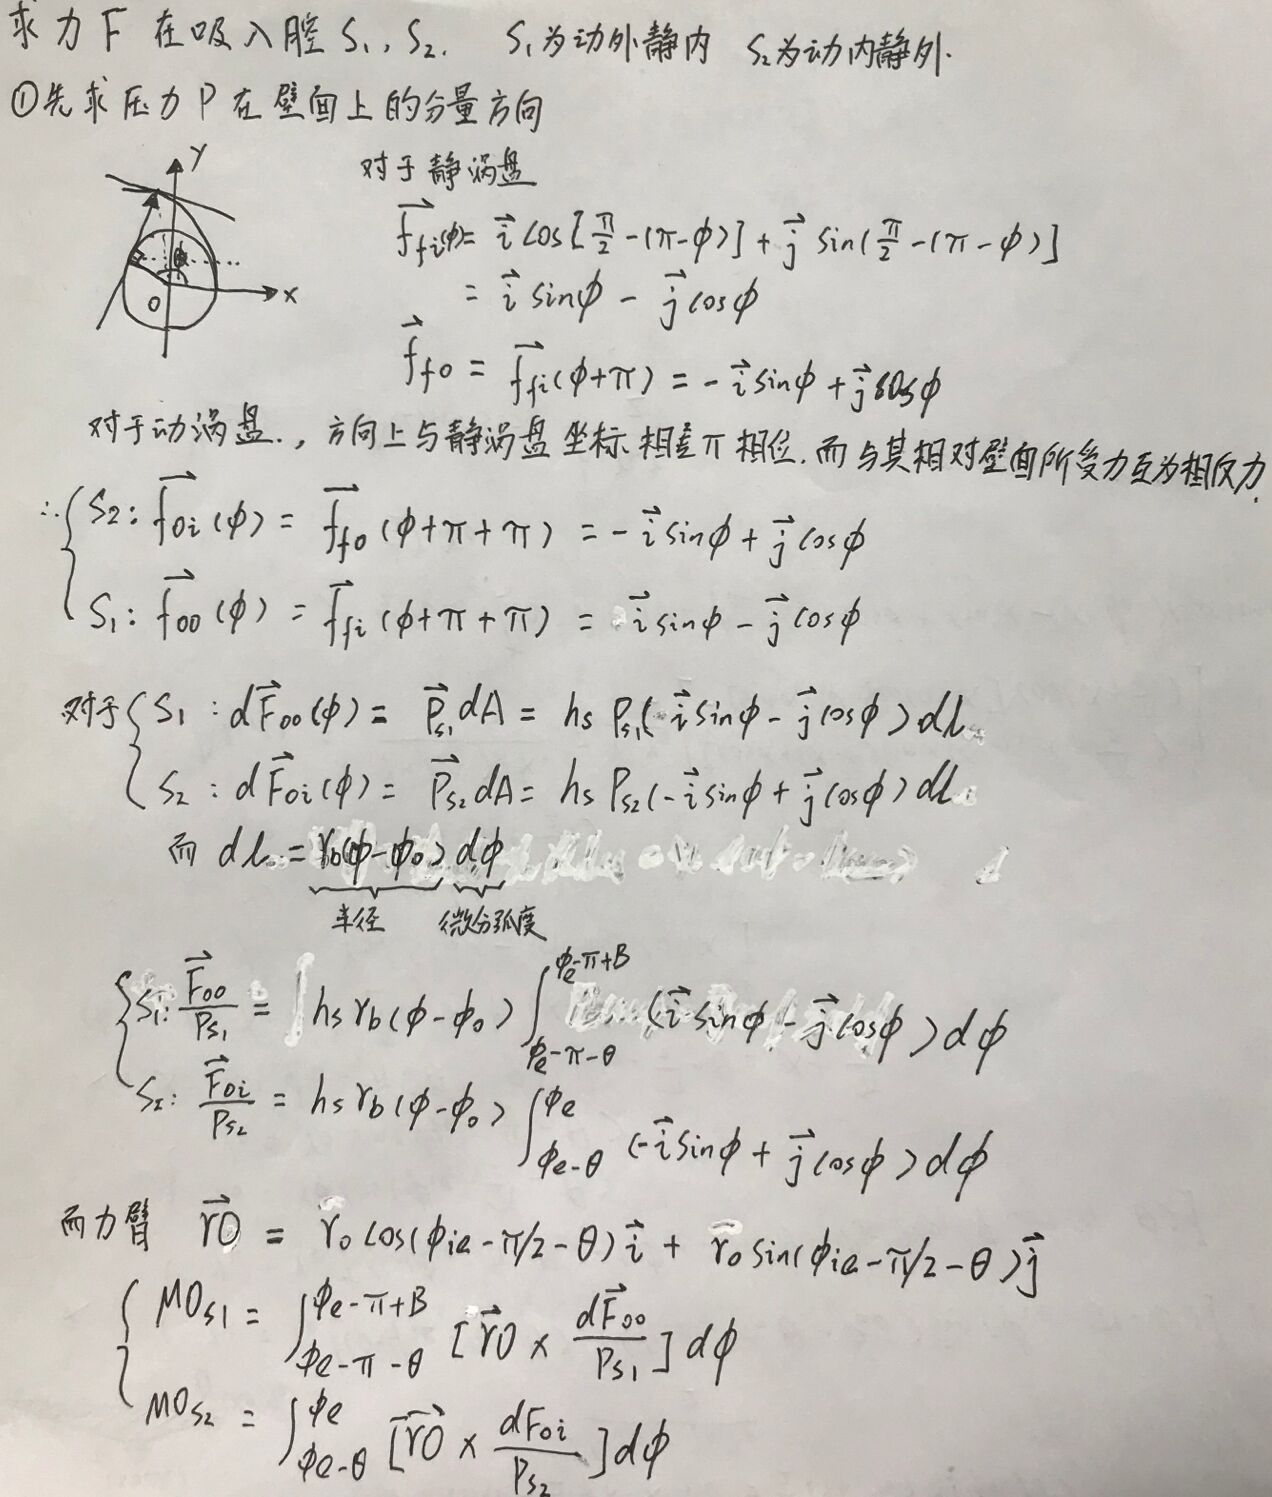 求力F在吸入腔S₁, S₂. S₁为动外静内 S₂为动内静外.
①先求压力P在壁面上的分量方向
y
x
O
φ
对于静涡盘
f⃗fi(φ) = i⃗ cos[π/2-(π-φ)] + j⃗ sin(π/2-(π-φ)]
= i⃗ sinφ - j⃗ cosφ
f⃗fo = f⃗fi(φ+π) = -i⃗ sinφ + j⃗ cosφ
对于动涡盘., 方向上与静涡盘坐标相差π相位. 而与其相对壁面所受力互为相反力.
∴ { S2: f⃗oi(φ) = f⃗fo(φ+π+π) = -i⃗ sinφ + j⃗ cosφ
S₁: f⃗oo(φ) = f⃗fi(φ+π+π) = i⃗ sinφ - j⃗ cosφ
对于 { S₁: dF⃗oo(φ) = P⃗s₁ dA = hs Ps₁( i⃗ sinφ - j⃗ cosφ) dl
S₂: dF⃗oi(φ) = P⃗s₂ dA = hs Ps₂(-i⃗ sinφ + j⃗ cosφ) dl
而 dl = rb(φ-φ₀) dφ
半径 微分弧度
{ S₁: F⃗oo/Ps₁ = hs rb(φ-φ₀) ∫_{φe-π-θ}^{φe-π+B} (i⃗ sinφ - j⃗ cosφ) dφ
S₂: F⃗oi/Ps₂ = hs rb(φ-φ₀) ∫_{φe-θ}^{φe} (-i⃗ sinφ + j⃗ cosφ) dφ
而力臂 r⃗O = r₀ cos(φie-π/2-θ) i⃗ + r₀ sin(φie-π/2-θ) j⃗
{ MOs1 = ∫_{φe-π-θ}^{φe-π+B} [r⃗O × dF⃗oo/Ps₁] dφ
MOs₂ = ∫_{φe-θ}^{φe} [r⃗O × dFoi/Ps₂] dφ